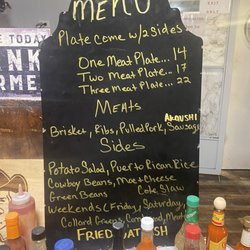 MENU
Plate come w/2 sides
One Meat Plate... 14
Two Meat Plate... 17
Three Meat Plate... 22
Meats
Akaushi
Brisket, Ribs, Pulled Pork, Sausage
Sides
Potato Salad, Puerto Rican Rice
Cowboy Beans, Mac & Cheese
Green Beans Cole Slaw
Weekends (Friday, Saturday,
Collard Greens, Corn
FRIED CATFISH
TODAY